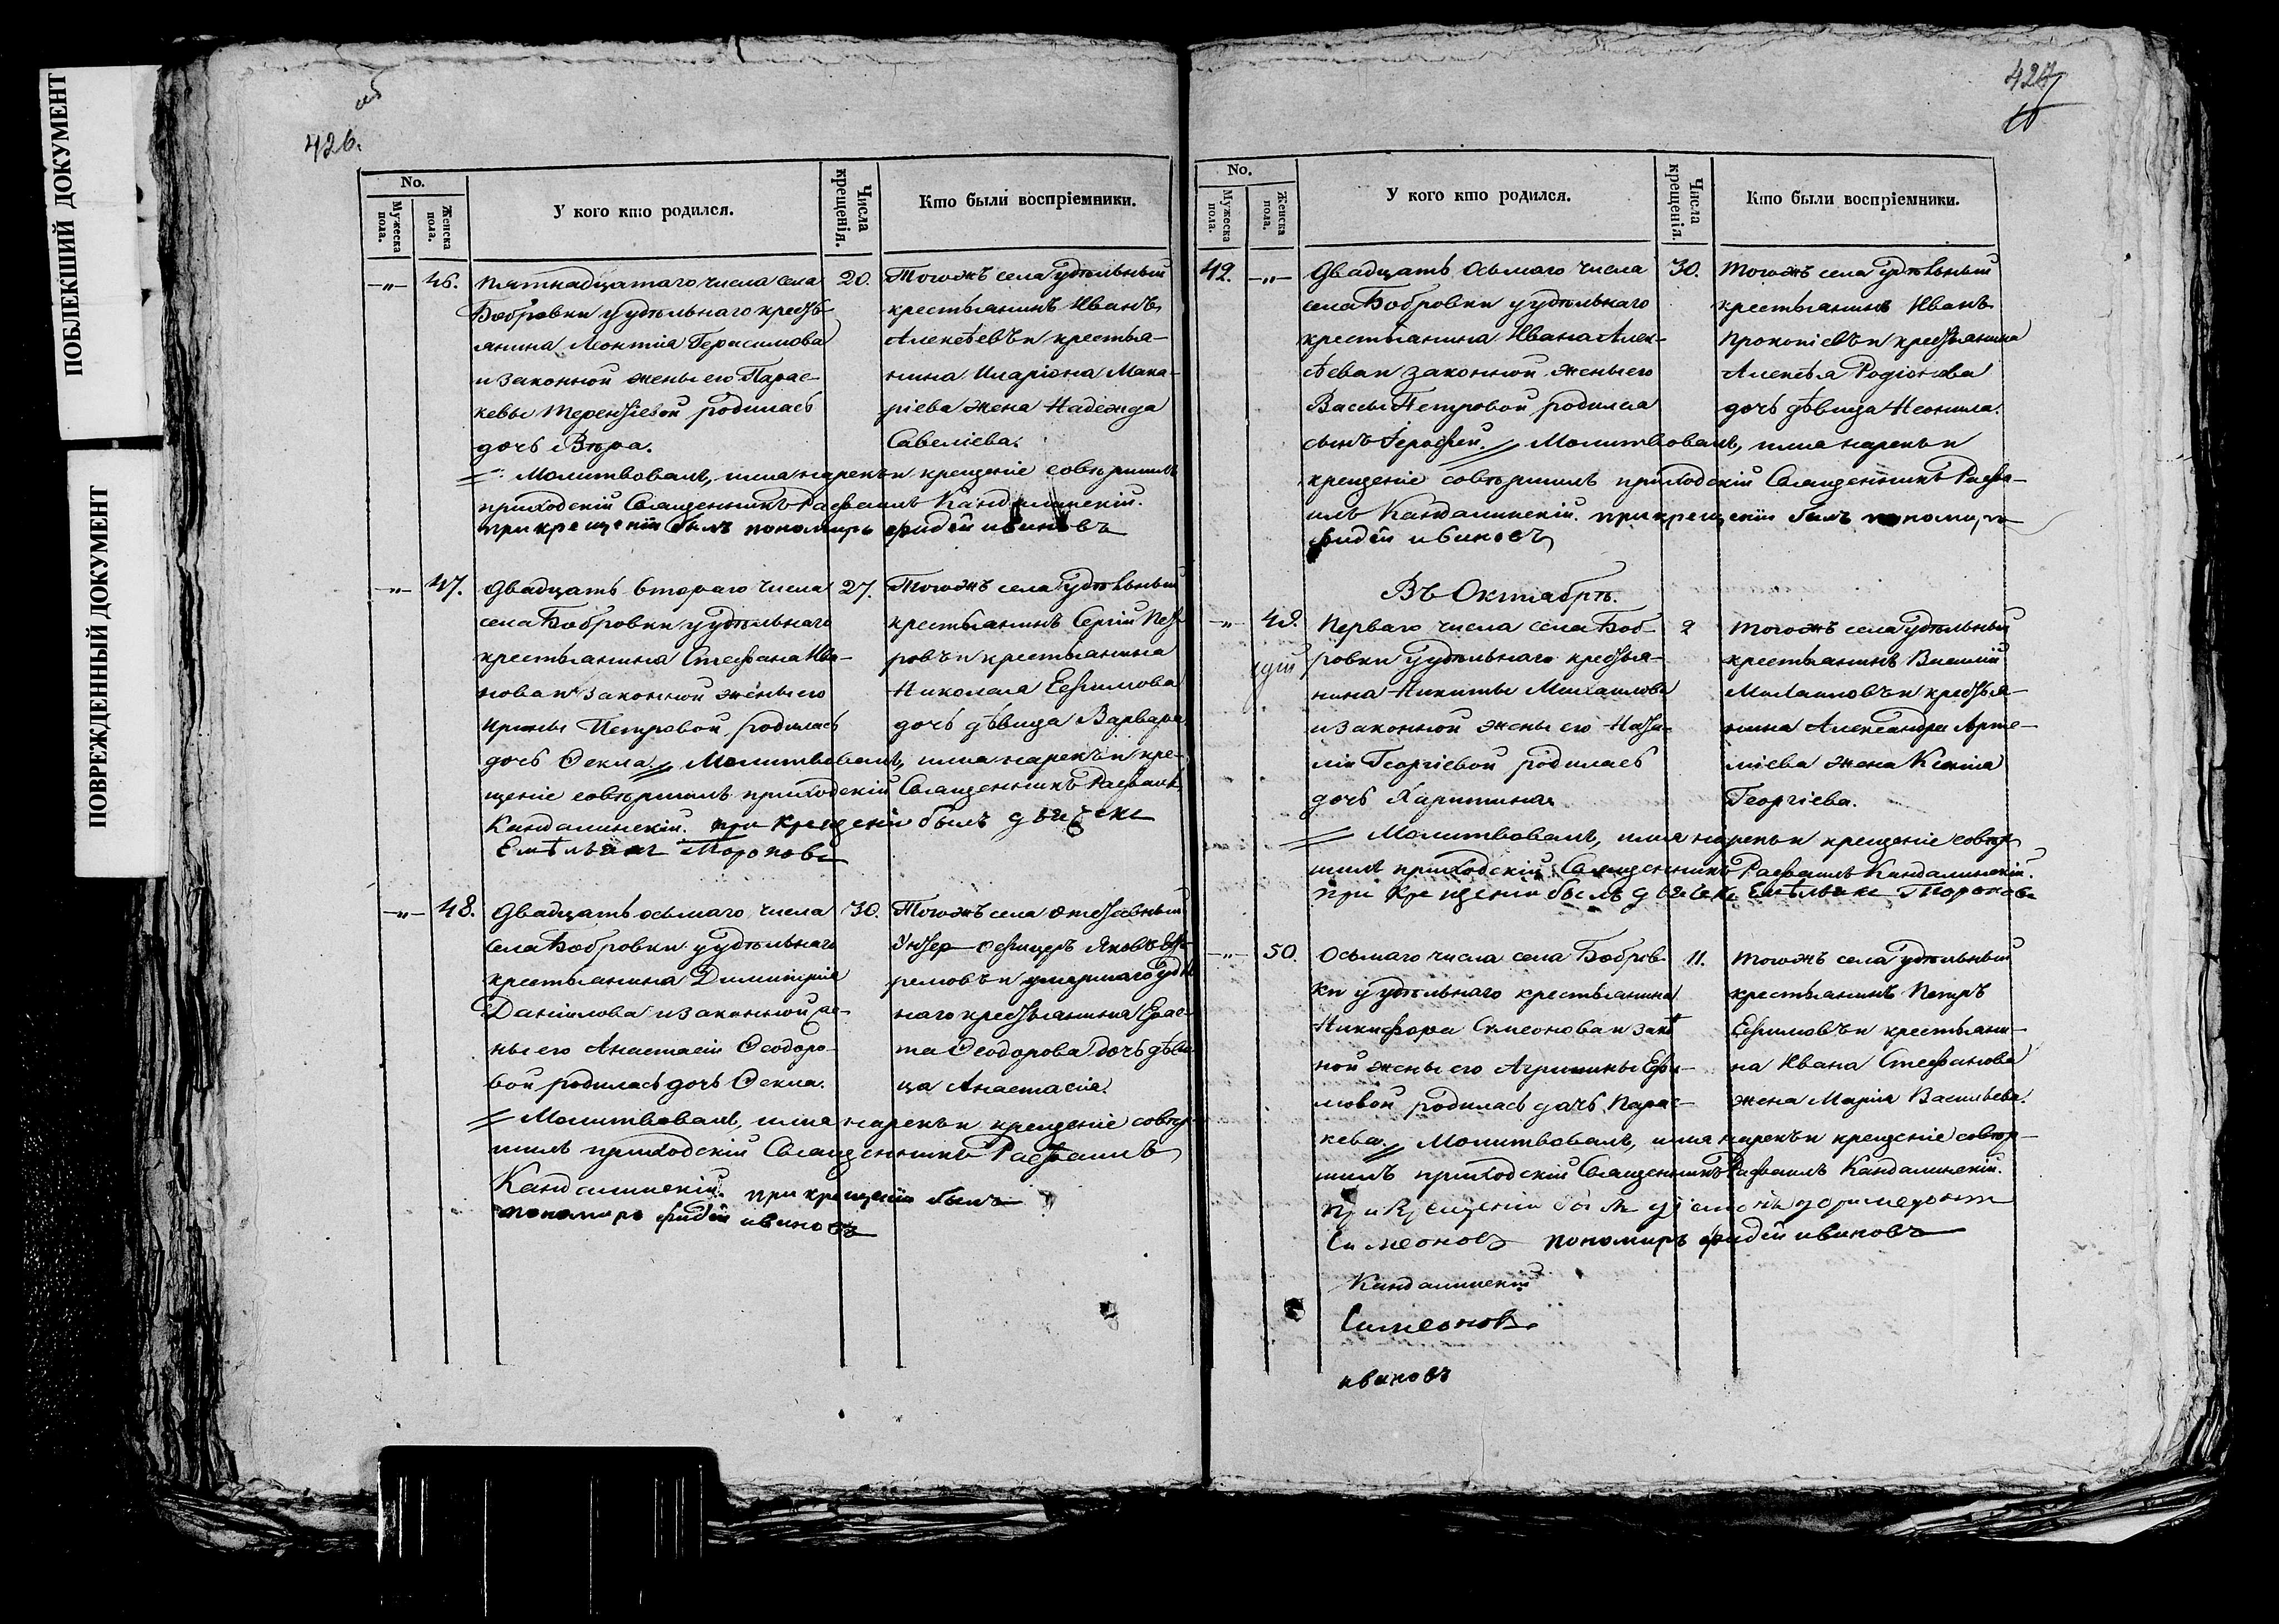 ПОБЛЕКШИЙ ДОКУМЕНТ
ПОВРЕЖДЕННЫЙ ДОКУМЕНТ
426.
No.
Мужеска пола.
Женска пола.
У кого кто родился.
Числа крещенія.
Кто были воспріемники.
—„— 46. Пятнадцатаго числа села
Бобровки у удѣльнаго кресть-
янина Леонтія Герасимова
и законной жены его Парас-
кевы Терентіевой родилась
дочь Вѣра.
20. Тогожъ села удѣльный
крестьянинъ Иванъ
Алексѣевъ и крестья-
нина Иларіона Мака-
ріева жена Надежда
Савеліева.
Молитвовалъ, имя нарекъ и крещеніе совершилъ
приходскій Священникъ Рафаилъ Кандалинскій.
при крещеніи былъ пономарь фидей ивановъ
—„— 47. Двадцать втораго числа
села Бобровки у удѣльнаго
крестьянина Стефана Ива-
нова и законной жены его
Ирины Петровой родилась
дочь Ѳекла
27. Тогожъ села удѣльный
крестьянинъ Сергій Пет-
ровъ и крестьянина
Николая Ефимова
дочь дѣвица Варвара
Молитвовалъ, имя нарекъ и кре-
щеніе совершилъ приходскій Священникъ Рафаилъ
Кандалинскій. при крещеніи былъ дьячекъ
Емѣльянъ Тороповъ
—„— 48. Двадцать осьмаго числа
села Бобровки у удѣльнаго
крестьянина Димитрія
Даніилова и законной же-
ны его Анастасіи Ѳеодоро-
вой родилась дочь Ѳекла.
30. Тогожъ села отставный
Унтер-офицеръ Яковъ Еф-
ремовъ и умершаго удѣль
наго крестьянина Ерас-
та Ѳеодорова дочь дѣви
ца Анастасія.
Молитвовалъ, имя нарекъ и крещеніе совер-
шилъ приходскій Священникъ Рафаилъ
Кандалинскій. при крещеніи былъ
пономарь фидей ивановъ
427
No.
Мужеска пола.
Женска пола.
У кого кто родился.
Числа крещенія.
Кто были воспріемники.
42. —„— Двадцать осьмаго числа
села Бобровки у удѣльнаго
крестьянина Ивана Алек-
сѣева и законной жены его
Вассы Петровой родился
сынъ Іерофей.
30. Тогожъ села удѣльный
крестьянинъ Иванъ
Прокопіевъ и крестьянина
Алексѣя Родіонова
дочь дѣвица Неонила.
Молитвовалъ, имя нарекъ и
крещеніе совершилъ приходскій Священникъ Рафа-
илъ Кандалинскій. при крещеніи былъ пономарь
фидей ивановъ
Въ Октябрѣ.
—„— 49. Перваго числа села Боб-
ровки у удѣльнаго крестья-
нина Никиты Михаилова
и законной жены его Ната-
ліи Георгіевой родилась
дочь Харитина
2 Тогожъ села удѣльный
крестьянинъ Василій
Михаиловъ и крестья-
нина Александра Арте-
міева жена Ксенія
Георгіева.
Молитвовалъ, имя нарекъ и крещеніе совер
шилъ приходскій Священникъ Рафаилъ Кандалинскій.
при крещеніи былъ дьячекъ Емѣльянъ Тороповъ
—„— 50. Осьмаго числа села Бобров-
ки у удѣльнаго крестьянина
Никифора Симеонова и закон
ной жены его Агрипины Ефи-
мовой родилась дочь Парас-
кева.
11. Тогожъ села удѣльный
крестьянинъ Петръ
Ефимовъ и крестьяни-
на Ивана Стефанова
жена Марія Васильева.
Молитвовалъ, имя нарекъ и крещеніе совер-
шилъ приходскій Священникъ Рафаилъ Кандалинскій.
при крещеніи былъ
Симеоновъ пономарь фидей ивановъ
Кандалинскій
Симеоновъ
ивановъ